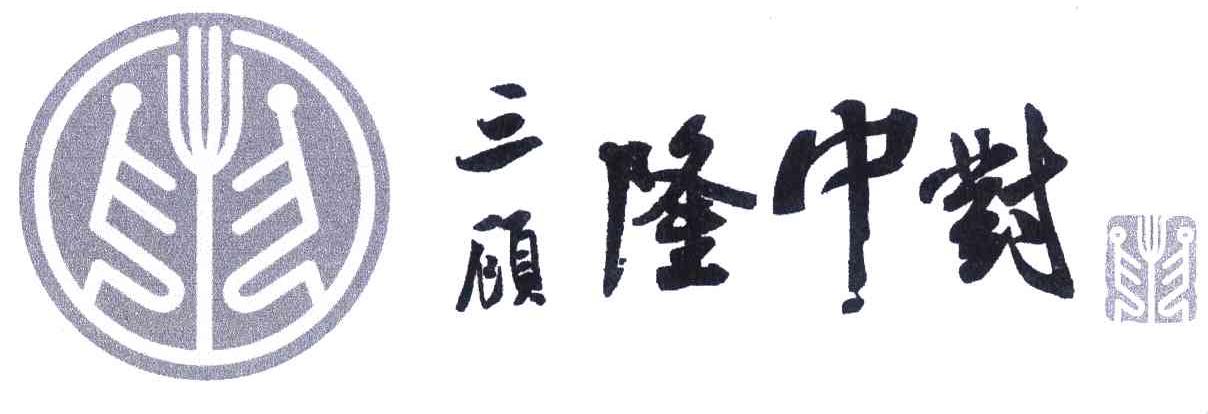 三顧
隆中對